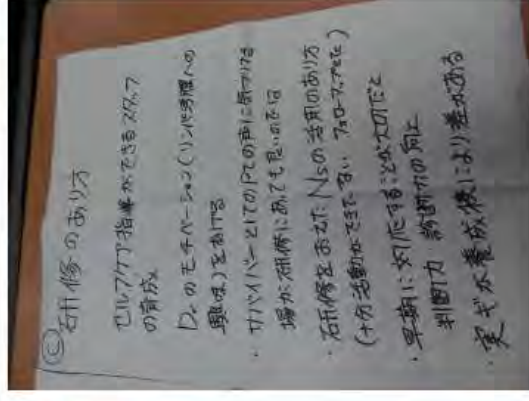 © 研修のあり方
セルフケア指導ができるスタッフ
の育成
Dr.のモチベーション(リンパ浮腫への
興味)をあげる
・サバイバーとしてのPtの声に気づける
場が研修にあっても良いのでは
・研修をおえたNsの活用のあり方
(十分活動ができてない フォローアップetc)
・早期に対応することが大切だと
判断力 診断力の向上
・実ギが養成校により差がある